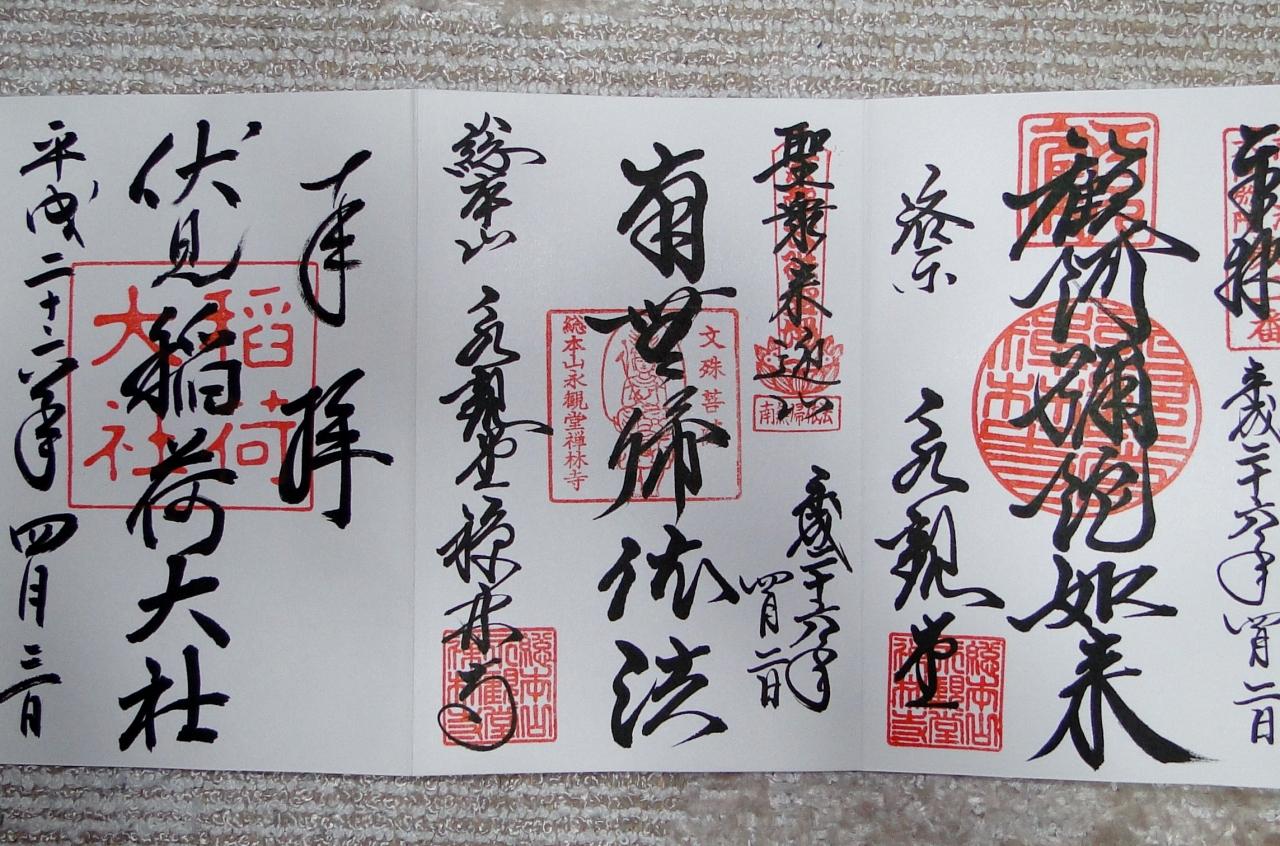 奉拝
平成二十六年 四月二日
阿彌陀如来
洛東 永観堂
総本山永觀堂禅林寺
聖衆来迎山
平成二十六年
四月二日
南無帰依法
文殊菩薩
総本山永觀堂禅林寺
総本山 永観堂禅林寺
総本山永觀堂禅林寺
奉拝
伏見稲荷大社
稲荷大社
平成二十六年 四月三日